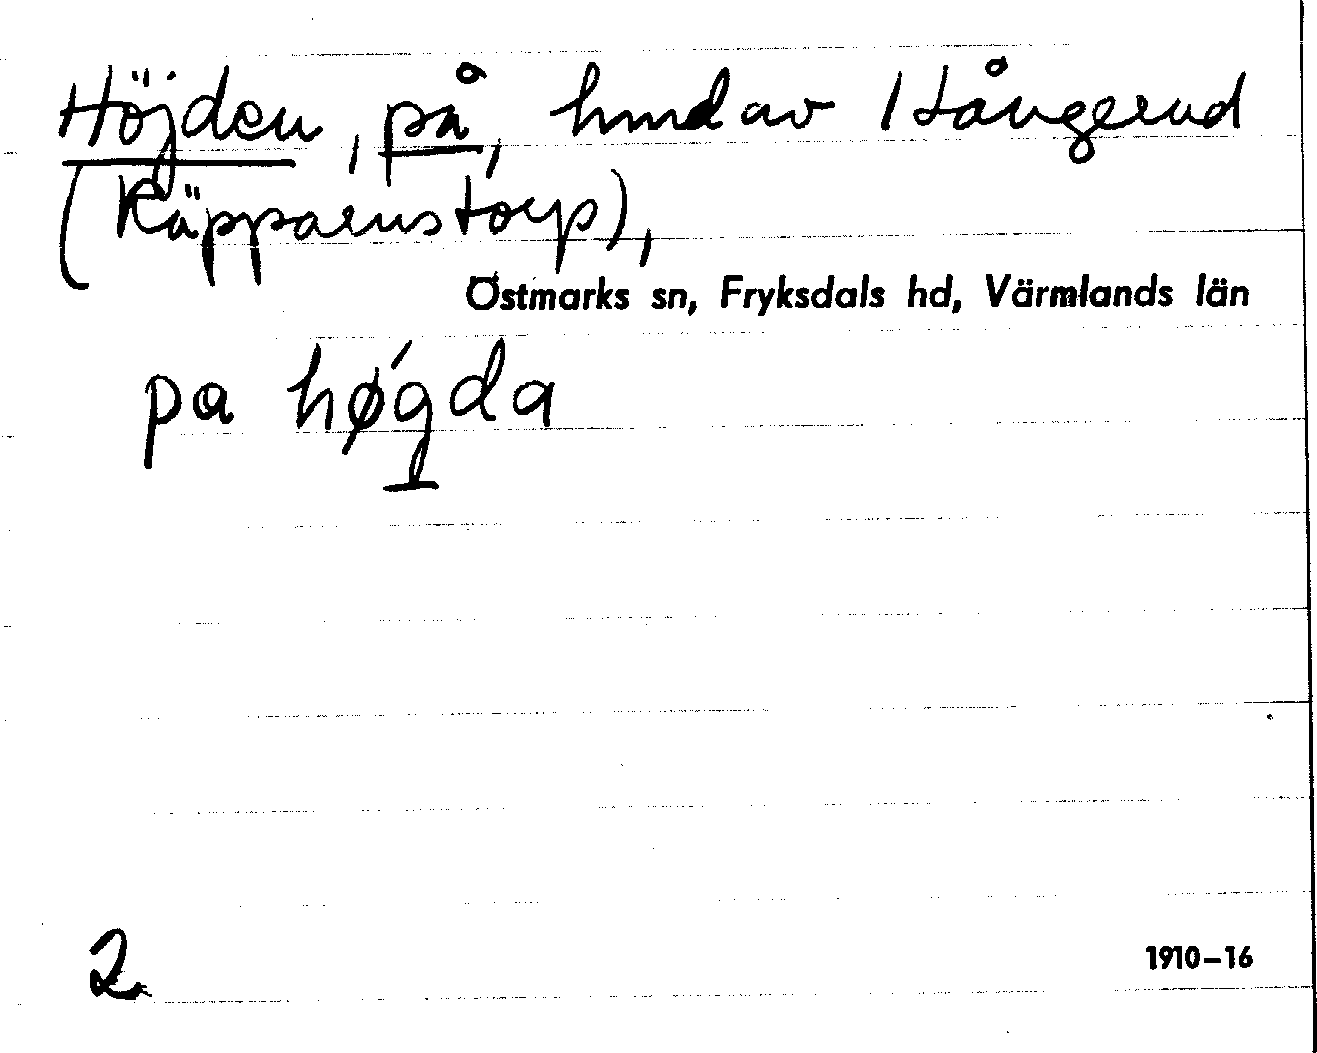 Höjden, på, hmd av Hångerud
(Käpparnstorp),
Östmarks sn, Fryksdals hd, Värmlands län
pa hø´gda
2
1910–16